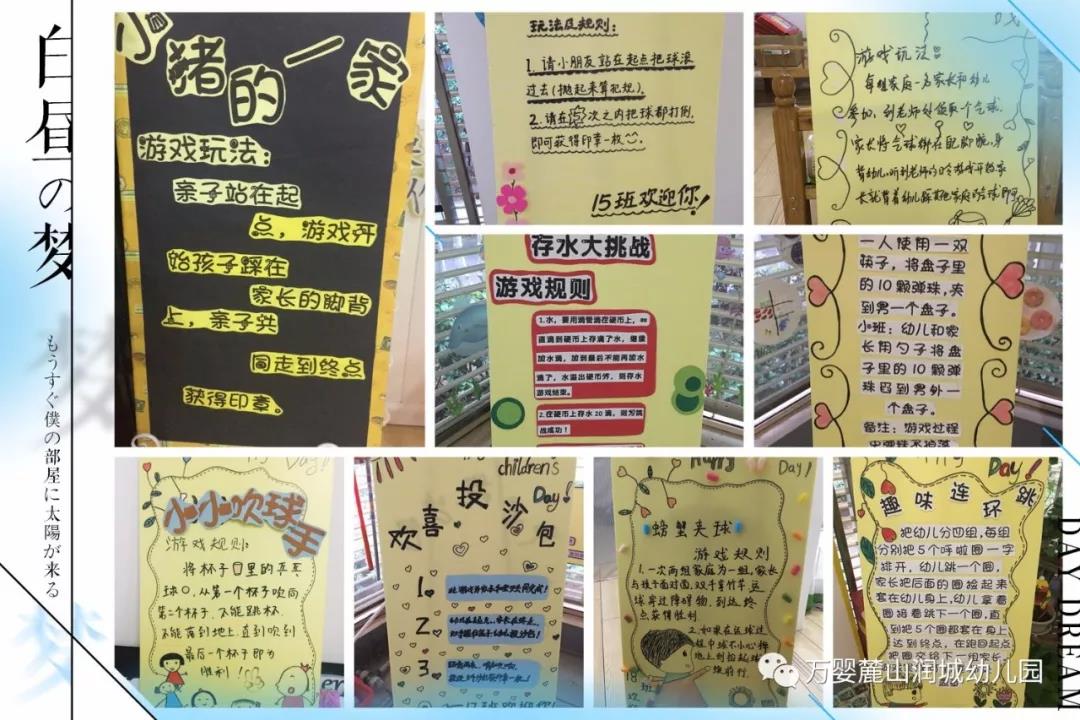 白昼の梦
もうすぐ僕の部屋に太陽が来る
小猪的一家
游戏玩法:
亲子站在起
点,游戏开
始孩子踩在
家长的脚背
上,亲子共
同走到终点
获得印章。
玩法及规则:
1.请小朋友站在起点把球滚
过去(抛起来算犯规).
2.请在 次之内把球都打倒,
即可获得印章一枚
15班欢迎你!
游戏玩法:
每组家庭一名家长和幼儿
参加,到老师处领取一个气球.
家长将气球绑在 脚腕,身
存水大挑战
游戏规则
1.水,要用滴管滴在硬币上,
直滴到硬币上存满了水,继续
加水滴,加到最后不能再加水
滴了,水溢出硬币外,则存水
游戏结束。
2.在硬币上存水20滴,则为挑
战成功!
一人使用一双
筷子,将盘子里
的10颗弹珠,夹
到男一个盘子。
小班:幼儿和家
长用勺子将盘
子里的10颗弹
珠舀到男外一
个盘子。
备注:游戏过程
Day!
小小吹球手
游戏规则:
将杯子里的乒乓
球,从第一个杯子吹向
第二个杯子.不能跳杯.
不能落到地上.直到吹到
最后一个杯子即为
胜利!
children's
Day!
欢喜投沙包
1.
2.
3
17班欢迎你!
Happy Day!
螃蟹夹球
游戏规则
1.一次两组家庭为一组,家长
与孩子面对面,双手拿竹竿,运
球穿过障碍物.到达终
点获得胜利
2.如果在运球过
程中球不小心掉
地上则捡起球
继续前行.
18班
Day!
趣味连环跳
把幼儿分四组,每组
分别把5个呼啦圈一字
排开,幼儿跳一个圈,
家长把后面的圈捡起来
套在幼儿身上,幼儿拿着
圈接着跳下一个圈,直
到把5个圈都套在身上
达到终点,在跑回起点
把圈交给下一组家长
万婴麓山润城幼儿园
DAY DREAM